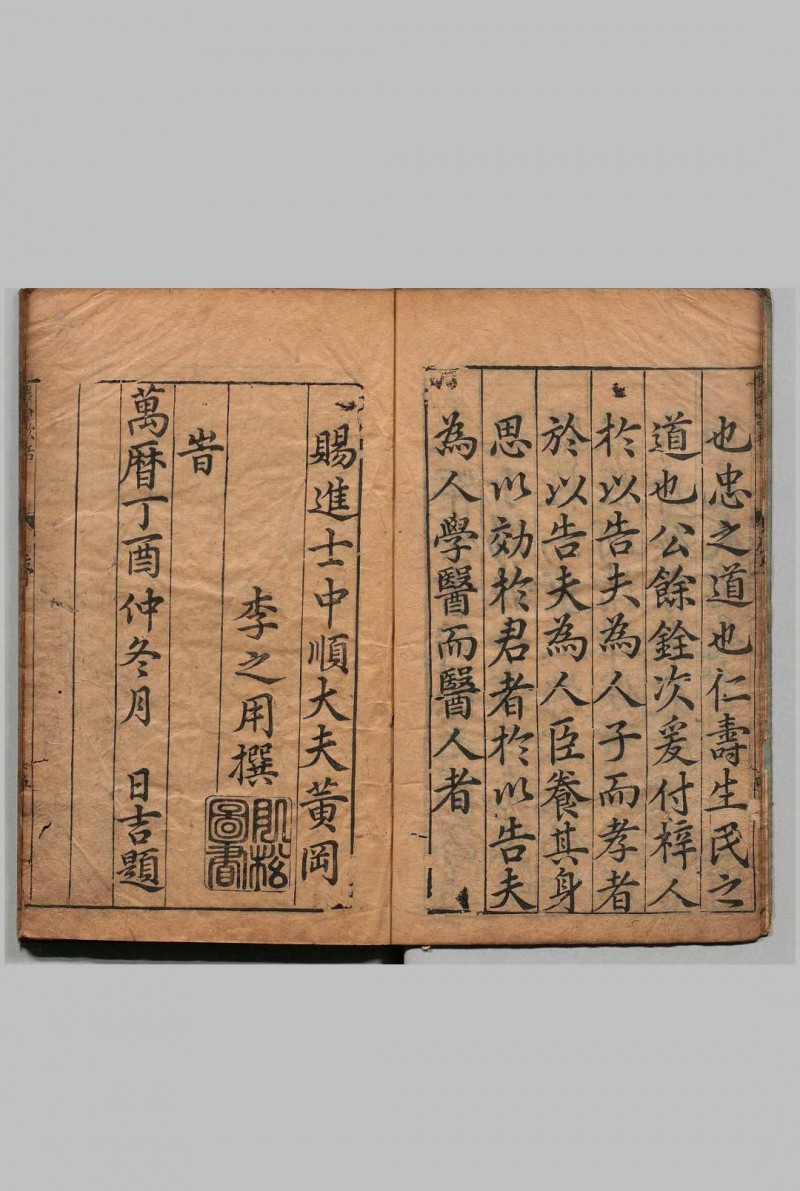 也忠之道也仁壽生民之
道也公餘銓次爰付梓人
於以告夫為人子而孝者
於以告夫為人臣養其身
思以効於君者於以告夫
為人學醫而醫人者
賜進士中順大夫黃岡
李之用撰
圖書
時
萬曆丁酉仲冬月 日吉題